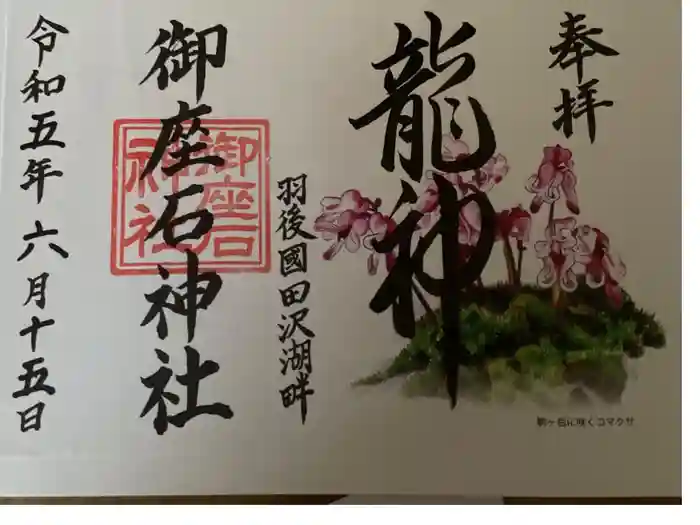 奉拝
龍神
駒ヶ岳に咲くコマクサ
羽後國田沢湖畔
御座石神社
御座石
神社
令和五年六月十五日